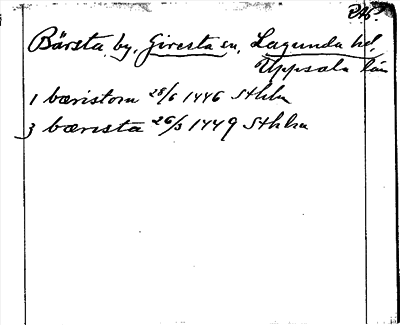 Bärsta by, Giresta sn, Lagunda hd,
Uppsala län
1 bæristom 28/6 1446 Sthlm
3 bærista 26/3 1449 Sthlm